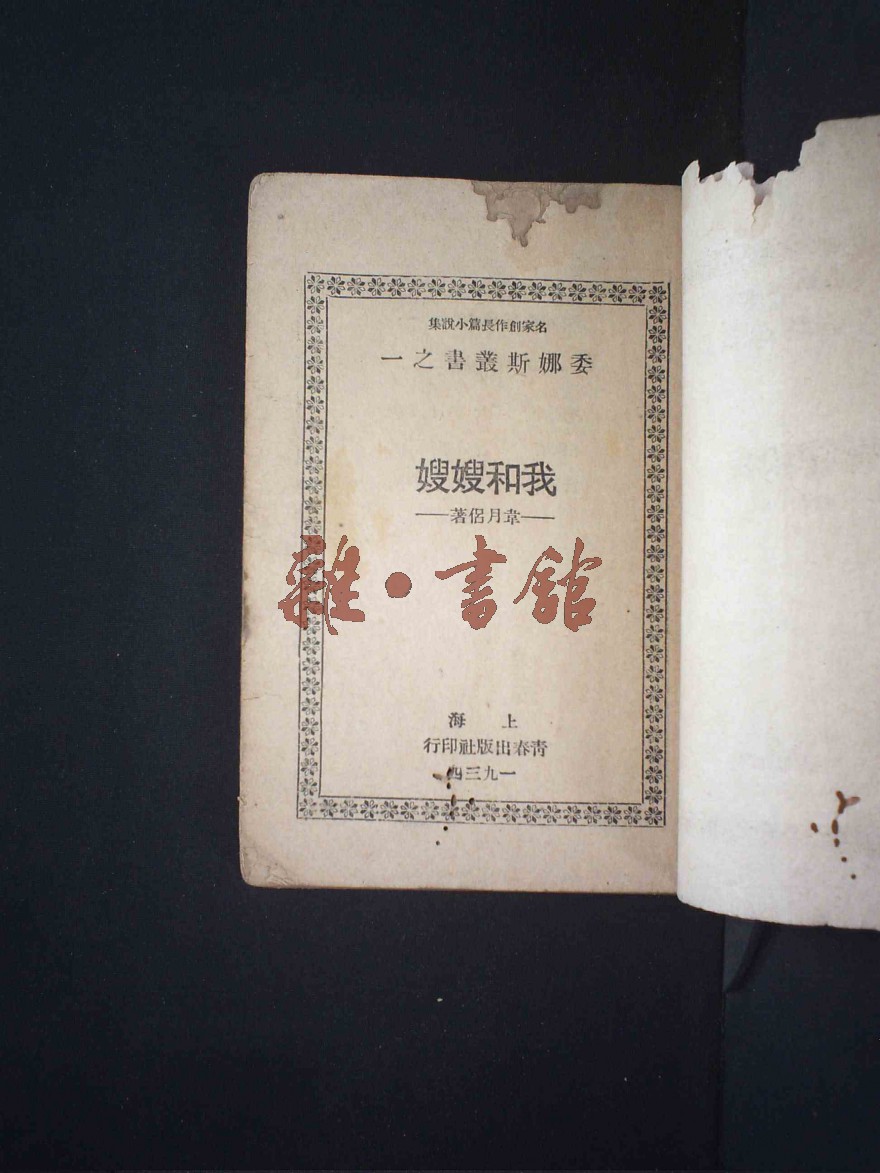 名家創作長篇小說集
委娜斯叢書之一
我和嫂嫂
——韋月侶著——
雜·書館
上海
青春出版社印行
一九三四